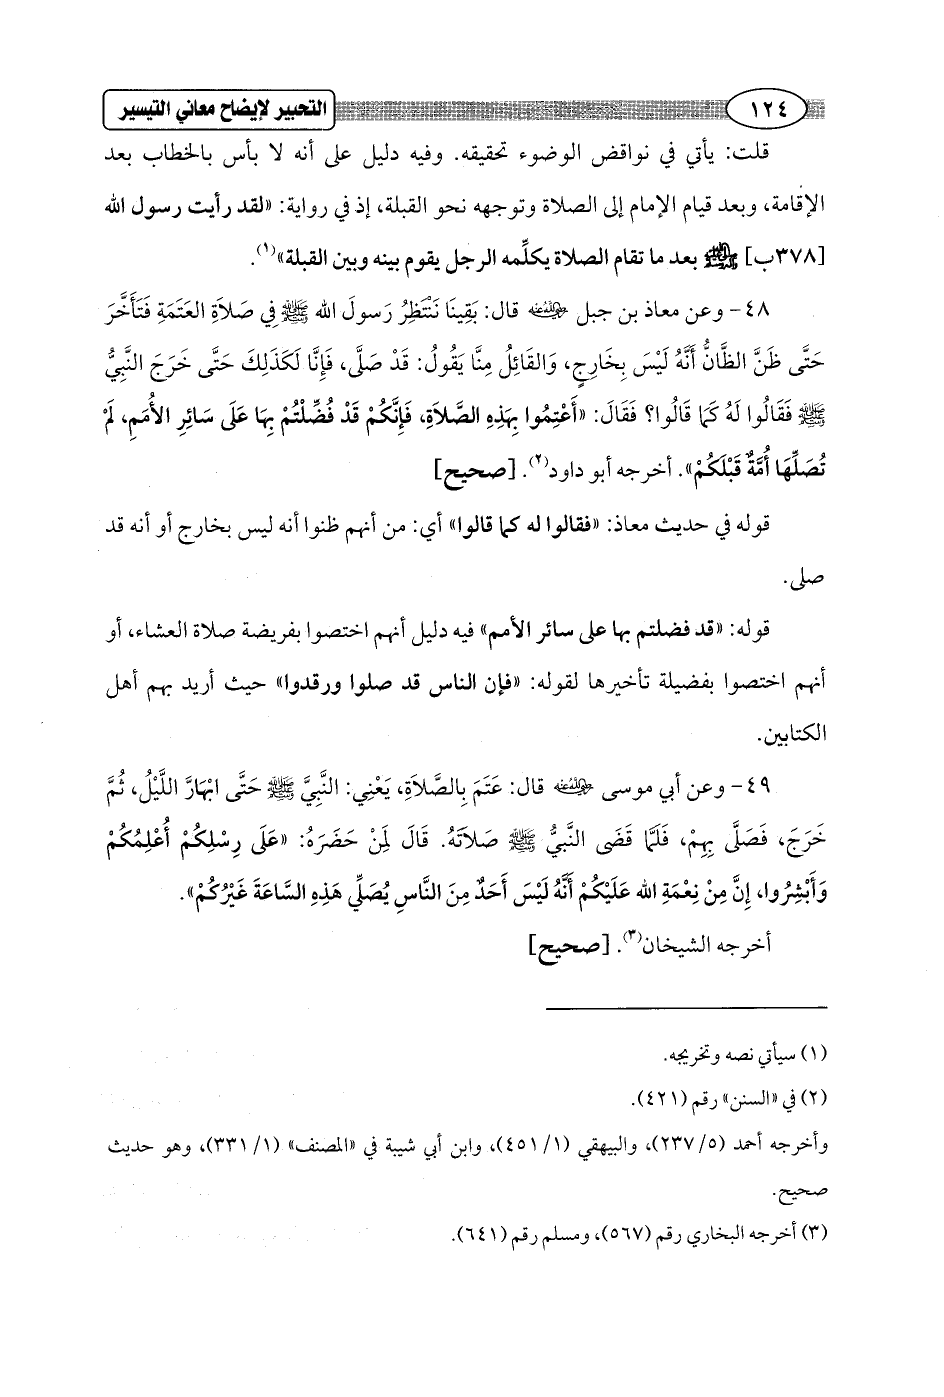 ١٢٤ التحبير لإيضاح معاني التيسير
قلت: يأتي في نواقض الوضوء تحقيقه. وفيه دليل على أنه لا بأس بالخطاب بعد
الإقامة، وبعد قيام الإمام إلى الصلاة وتوجهه نحو القبلة، إذ في رواية: «لقد رأيت رسول الله
[٣٧٨ب] ﷺ بعد ما تقام الصلاة يكلِّمه الرجل يقوم بينه وبين القبلة»(١).
٤٨- وعن معاذ بن جبل رضي الله عنه قال: بَقِينَا نَنْتَظِرُ رَسولَ الله ﷺ فِي صَلاَةِ العَتَمَةِ فَتَأَخَّرَ
حَتَّى ظَنَّ الظَّانُّ أَنَّهُ لَيْسَ بِخَارِجٍ، وَالقَائِلُ مِنَّا يَقُولُ: قَدْ صَلَّى، فَإِنَّا لَكَذَلِكَ حَتَّى خَرَجَ النَّبِيُّ
ﷺ فَقَالُوا لَهُ كَمَا قَالُوا؟ فَقَالَ: «أَعْتِمُوا بِهَذِهِ الصَّلاَةِ، فَإِنَّكُمْ قَدْ فُضِّلْتُمْ بِهَا عَلَى سَائِرِ الأُمَمِ، لَمْ
تُصَلِّهَا أُمَّةٌ قَبْلَكُمْ». أخرجه أبو داود(٢). [صحيح]
قوله في حديث معاذ: «فقالوا له كما قالوا» أي: من أنهم ظنوا أنه ليس بخارج أو أنه قد
صلى.
قوله: «قد فضلتم بها على سائر الأمم» فيه دليل أنهم اختصوا بفريضة صلاة العشاء، أو
أنهم اختصوا بفضيلة تأخيرها لقوله: «فإن الناس قد صلوا ورقدوا» حيث أريد بهم أهل
الكتابين.
٤٩- وعن أبي موسى رضي الله عنه قال: عَتَمَ بِالصَّلاَةِ، يَعْنِي: النَّبِيَّ ﷺ حَتَّى ابْهَارَّ اللَّيْلُ، ثُمَّ
خَرَجَ، فَصَلَّى بِهِمْ، فَلَمَّا قَضَى النَّبِيُّ ﷺ صَلاَتَهُ. قَالَ لِمَنْ حَضَرَهُ: «عَلَى رِسْلِكُمْ أُعْلِمُكُمْ
وَأَبْشِرُوا، إِنَّ مِنْ نِعْمَةِ الله عَلَيْكُمْ أَنَّهُ لَيْسَ أَحَدٌ مِنَ النَّاسِ يُصَلِّي هَذِهِ السَّاعَةَ غَيْرُكُمْ».
أخرجه الشيخان(٣). [صحيح]
(١) سيأتي نصه وتخريجه.
(٢) في «السنن» رقم (٤٢١).
وأخرجه أحمد (٥/ ٢٣٧)، والبيهقي (١/ ٤٥١)، وابن أبي شيبة في «المصنف» (١/ ٣٣١)، وهو حديث
صحيح.
(٣) أخرجه البخاري رقم (٥٦٧)، ومسلم رقم (٦٤١).